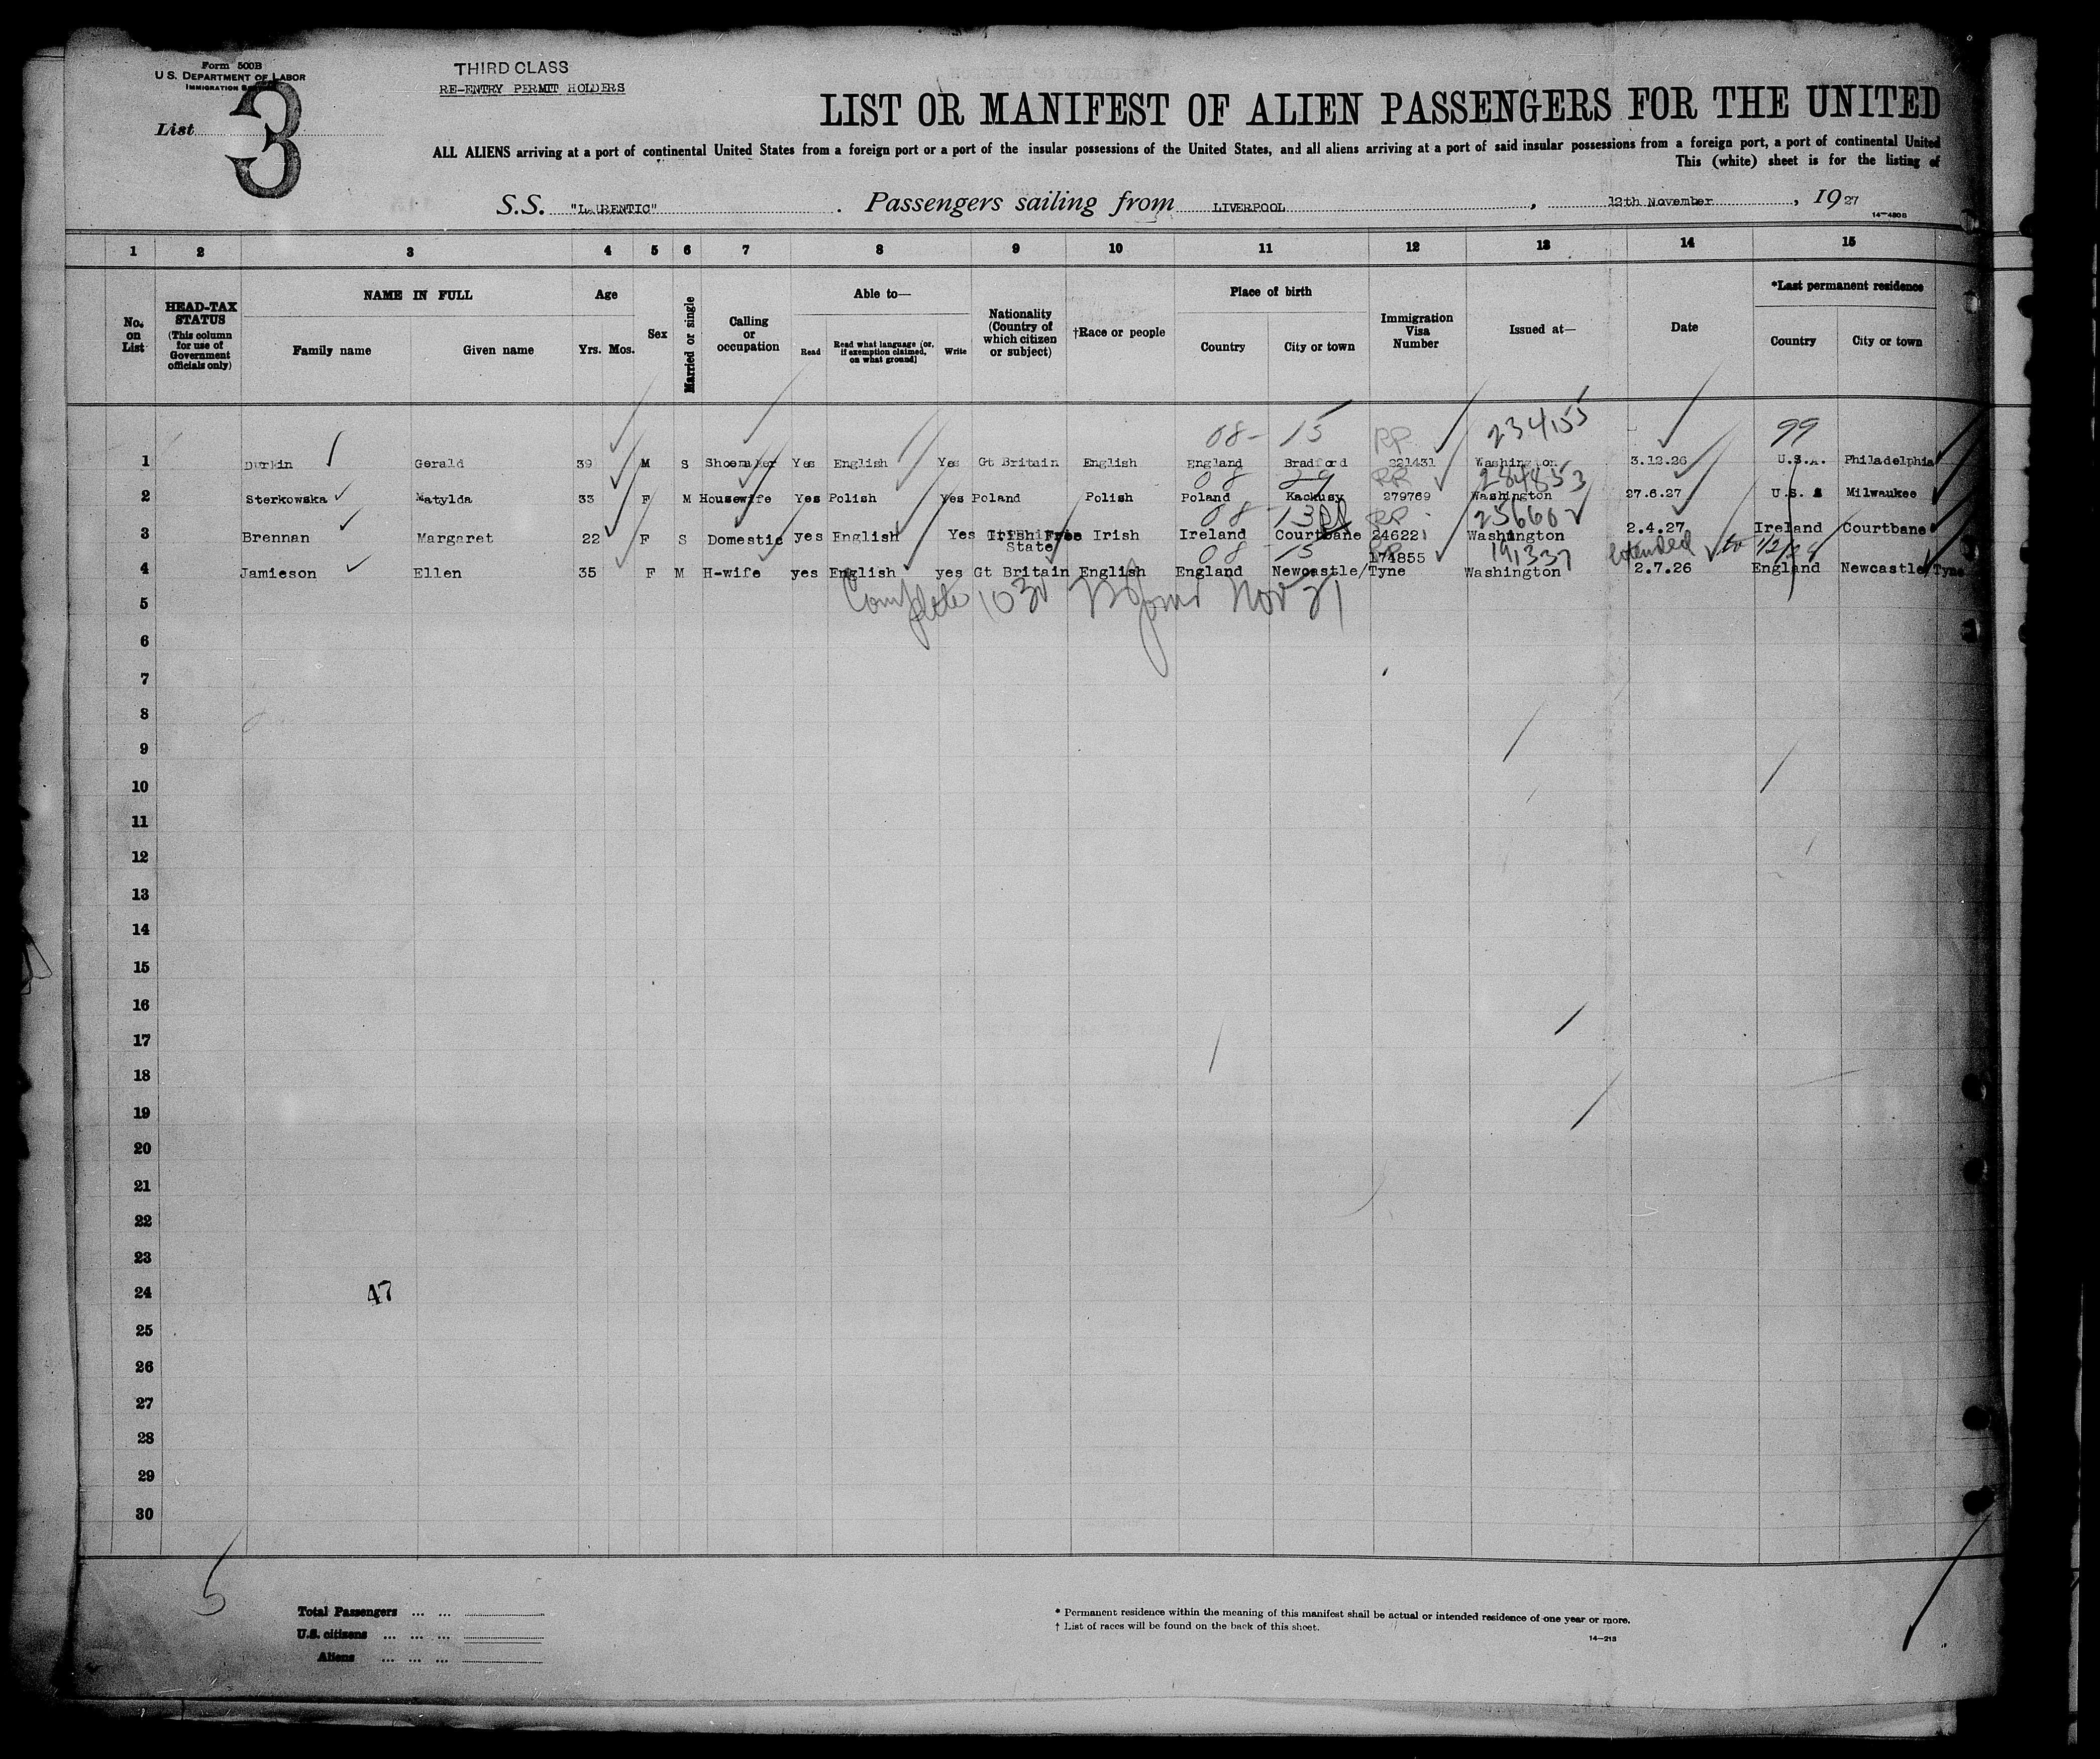 Form 500B
U. S. DEPARTMENT OF LABOR
IMMIGRATION
THIRD CLASS
RE-ENTRY PERMIT HOLDERS
List 3
LIST OR MANIFEST OF ALIEN PASSENGERS FOR THE UNITED
ALL ALIENS arriving at a port of continental United States from a foreign port or a port of the insular possessions of the United States, and all aliens arriving at a port of said insular possessions from a foreign port, a port of continental United
This (white) sheet is for the listing of
S.S. "LAURENTIC" . Passengers sailing from LIVERPOOL , 12th November , 1927
14-4808
1 2 3 4 5 6 7 8 9 10 11 12 13 14 15
No. on List
HEAD-TAX STATUS (This column for use of Government officials only)
NAME IN FULL
Family name Given name
Age
Yrs. Mos.
Sex
Married or single
Calling or occupation
Able to—
Read Read what language (or, if exemption claimed, on what ground) Write
Nationality (Country of which citizen or subject)
†Race or people
Place of birth
Country City or town
Immigration Visa Number
Issued at—
Date
*Last permanent residence
Country City or town
08- 15 RP 234155 99
1 Durkin Gerald 39 M S Shoemaker Yes English Yes Gt Britain English England Bradford 221431 Washington 3.12.26 U.S.A. Philadelphia
08 29 RR 284853
2 Sterkowska Matylda 33 F M Housewife Yes Polish Yes Poland Polish Poland Kackusy 279769 Washington 27.6.27 U.S. Milwaukee
08 - 13 RP 256602
3 Brennan Margaret 22 F S Domestic yes English Yes Irish Free State Irish Ireland Courtbane 246221 Washington 2.4.27 Ireland Courtbane
08 - 15 RP 191337 Extended to 1/2/28
4 Jamieson Ellen 35 F M H-wife yes English yes Gt Britain English England Newcastle/Tyne 174855 Washington 2.7.26 England Newcastle/Tyne
Complete 10 Nov 21
5
6
7
8
9
10
11
12
13
14
15
16
17
18
19
20
21
22
23
24 47
25
26
27
28
29
30
5
Total Passengers ... ...
U.S. citizens ... ... ...
Aliens ... ... ...
* Permanent residence within the meaning of this manifest shall be actual or intended residence of one year or more.
† List of races will be found on the back of this sheet.
14-213